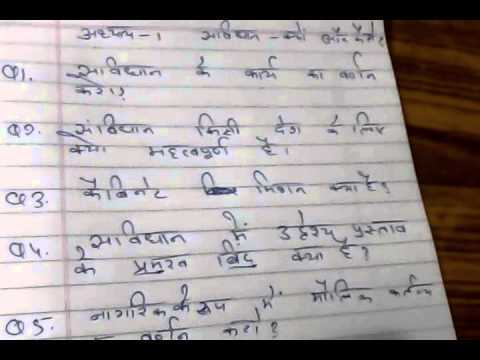 अध्याय-1 संविधान - क्यों और कैसे?
Q1. संविधान के कार्य का वर्णन
करो?
Q2. संविधान किसी देश के लिए
क्यो महत्वपूर्ण है।
Q3. कैबिनेट मिशन क्या है?
Q4. संविधान में उद्देश्य प्रस्ताव
के प्रमुख बिंदु क्या है?
Q5. नागरिक के रूप में मौलिक कर्तव्य
वर्णन करो?